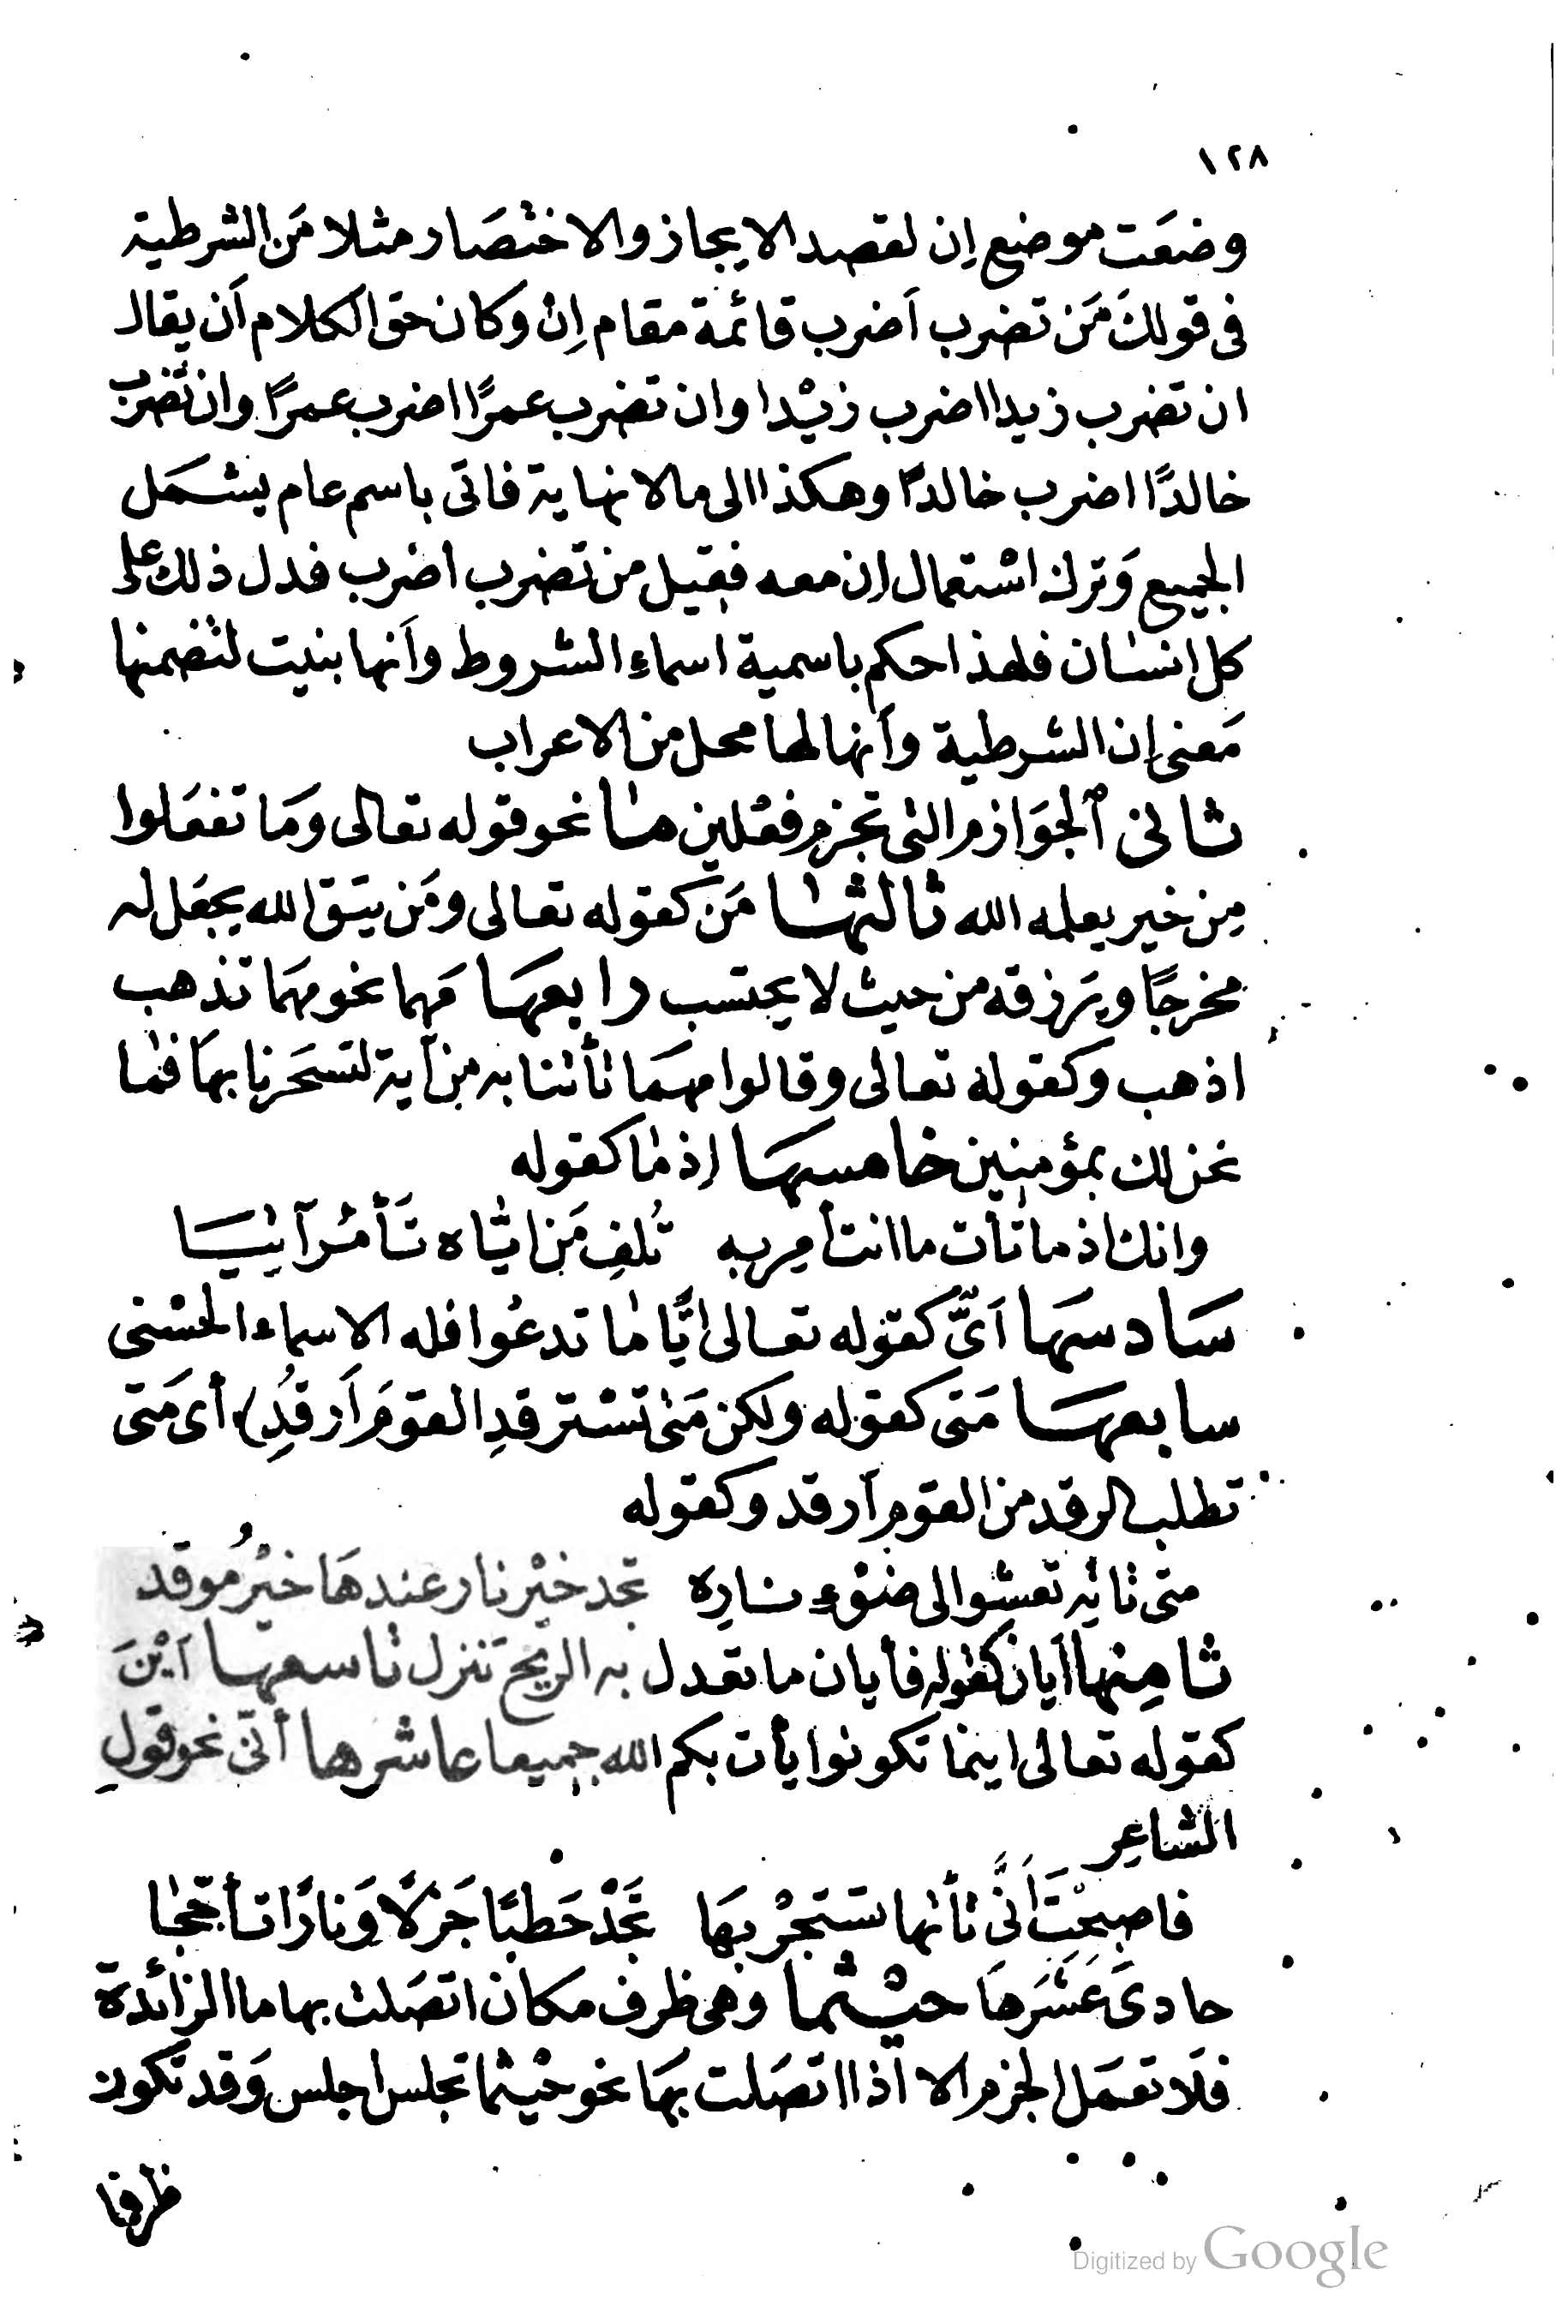 ١٢٨
وضعَت موضع اِن لقصد الايجاز والاختصَار مثلا مَن الشرطية
فى قولكَ مَن تضرب اَضرب قائمة مقام اِنْ وكان حق الكلام اَن يقال
ان تضرب زيدا اضرب زيْدا وان تضرب عمرًا اضرب عمرًا وان تضرب
خالدًا اضرب خالدًا وهكذا الى مالا نهاية فاتى باسم عام يشمَل
الجميع وَترك اسْتعمال اِن معه فقيل من تضرب اضرب فدل ذلك على
كل انسَان فلهذا حكم باسمية اسماءِ الشروط واَنها بنيت لتضمنها
مَعنى اِن الشرطية واَنها لها محل من الاعراب
ثانى الجوَازم التى تجزم فعْلين مَا نحو قوله تعالى ومَا تفعَلوا
مِن خير يعلمه الله ثالثهَا مَن كقوله تعالى ومَن يتق الله يجعَل له
مخرجًا ويَرزقه من حيث لا يحتسب رابعهَا مَهما نحو مهمَا تذهب
اذهب وكقوله تعالى وقالوا مهمَا تأتنا به من آية لتسحَرنا بهَا فمَا
نحن لك بمؤمنين خامسهَا اِذ مَا كقوله
وانك اذ ما تأت ما انت آمر به تُلفِ مَن ايَّاه تَأمُر آتيَا
سَادسهَا اَىّ كقوله تعالى ايًّا مَا تدعُوا فله الاسماء الحسْنى
سابعهَا مَتى كقوله ولكن مَتى تسْترفدِ القومَ اَرفدِ) أى مَتى
تطلب الرفد من القوم اَرفد وكقوله
متى تاته تعشوا الى ضوْءِ نارِه تجد خيْر نار عندهَا خيْرُ مُوقد
ثامِنها اَيان كقوله فأيان ما تعدل به الريحُ تنزل تاسعها اَيْنَ
كقوله تعالى اينما تكونوا يأت بكم الله جميعا عاشرها أنّى نحو قولِ
الشاعِر
فاصبحْتَ اَنَّى تأتها تسْتَجرْ بهَا تَجَدْ حَطبًا جَزلًا وَنارًا تأججَا
حادىَ عَشَرهَا حيْثما وهى ظرف مكان اتصَلت بها ما الزائدة
فلَا تعمَل الجزم الا اذا اتصَلت بهَا نحو حيْثما تجلس اجلس وَقد تكون
ظرفا
Digitized by Google